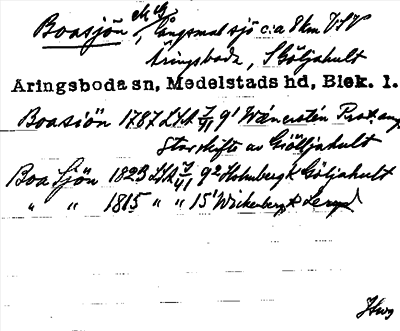 Boasjön, långsmal sjö c:a 8 km VSV
Åringsboda, S Göljahult
Åringsboda sn, Medelstads hd, Blek. l.
Boasiön 1787 LSA 7/41 9¹ Wänerstén Prot. ang.
Storskifte av Giölljahult
Boa Sjön 1823 LSA 7/41 9² Holmberg k Göljahult
" " 1815 " " 15¹ Wickenberg k